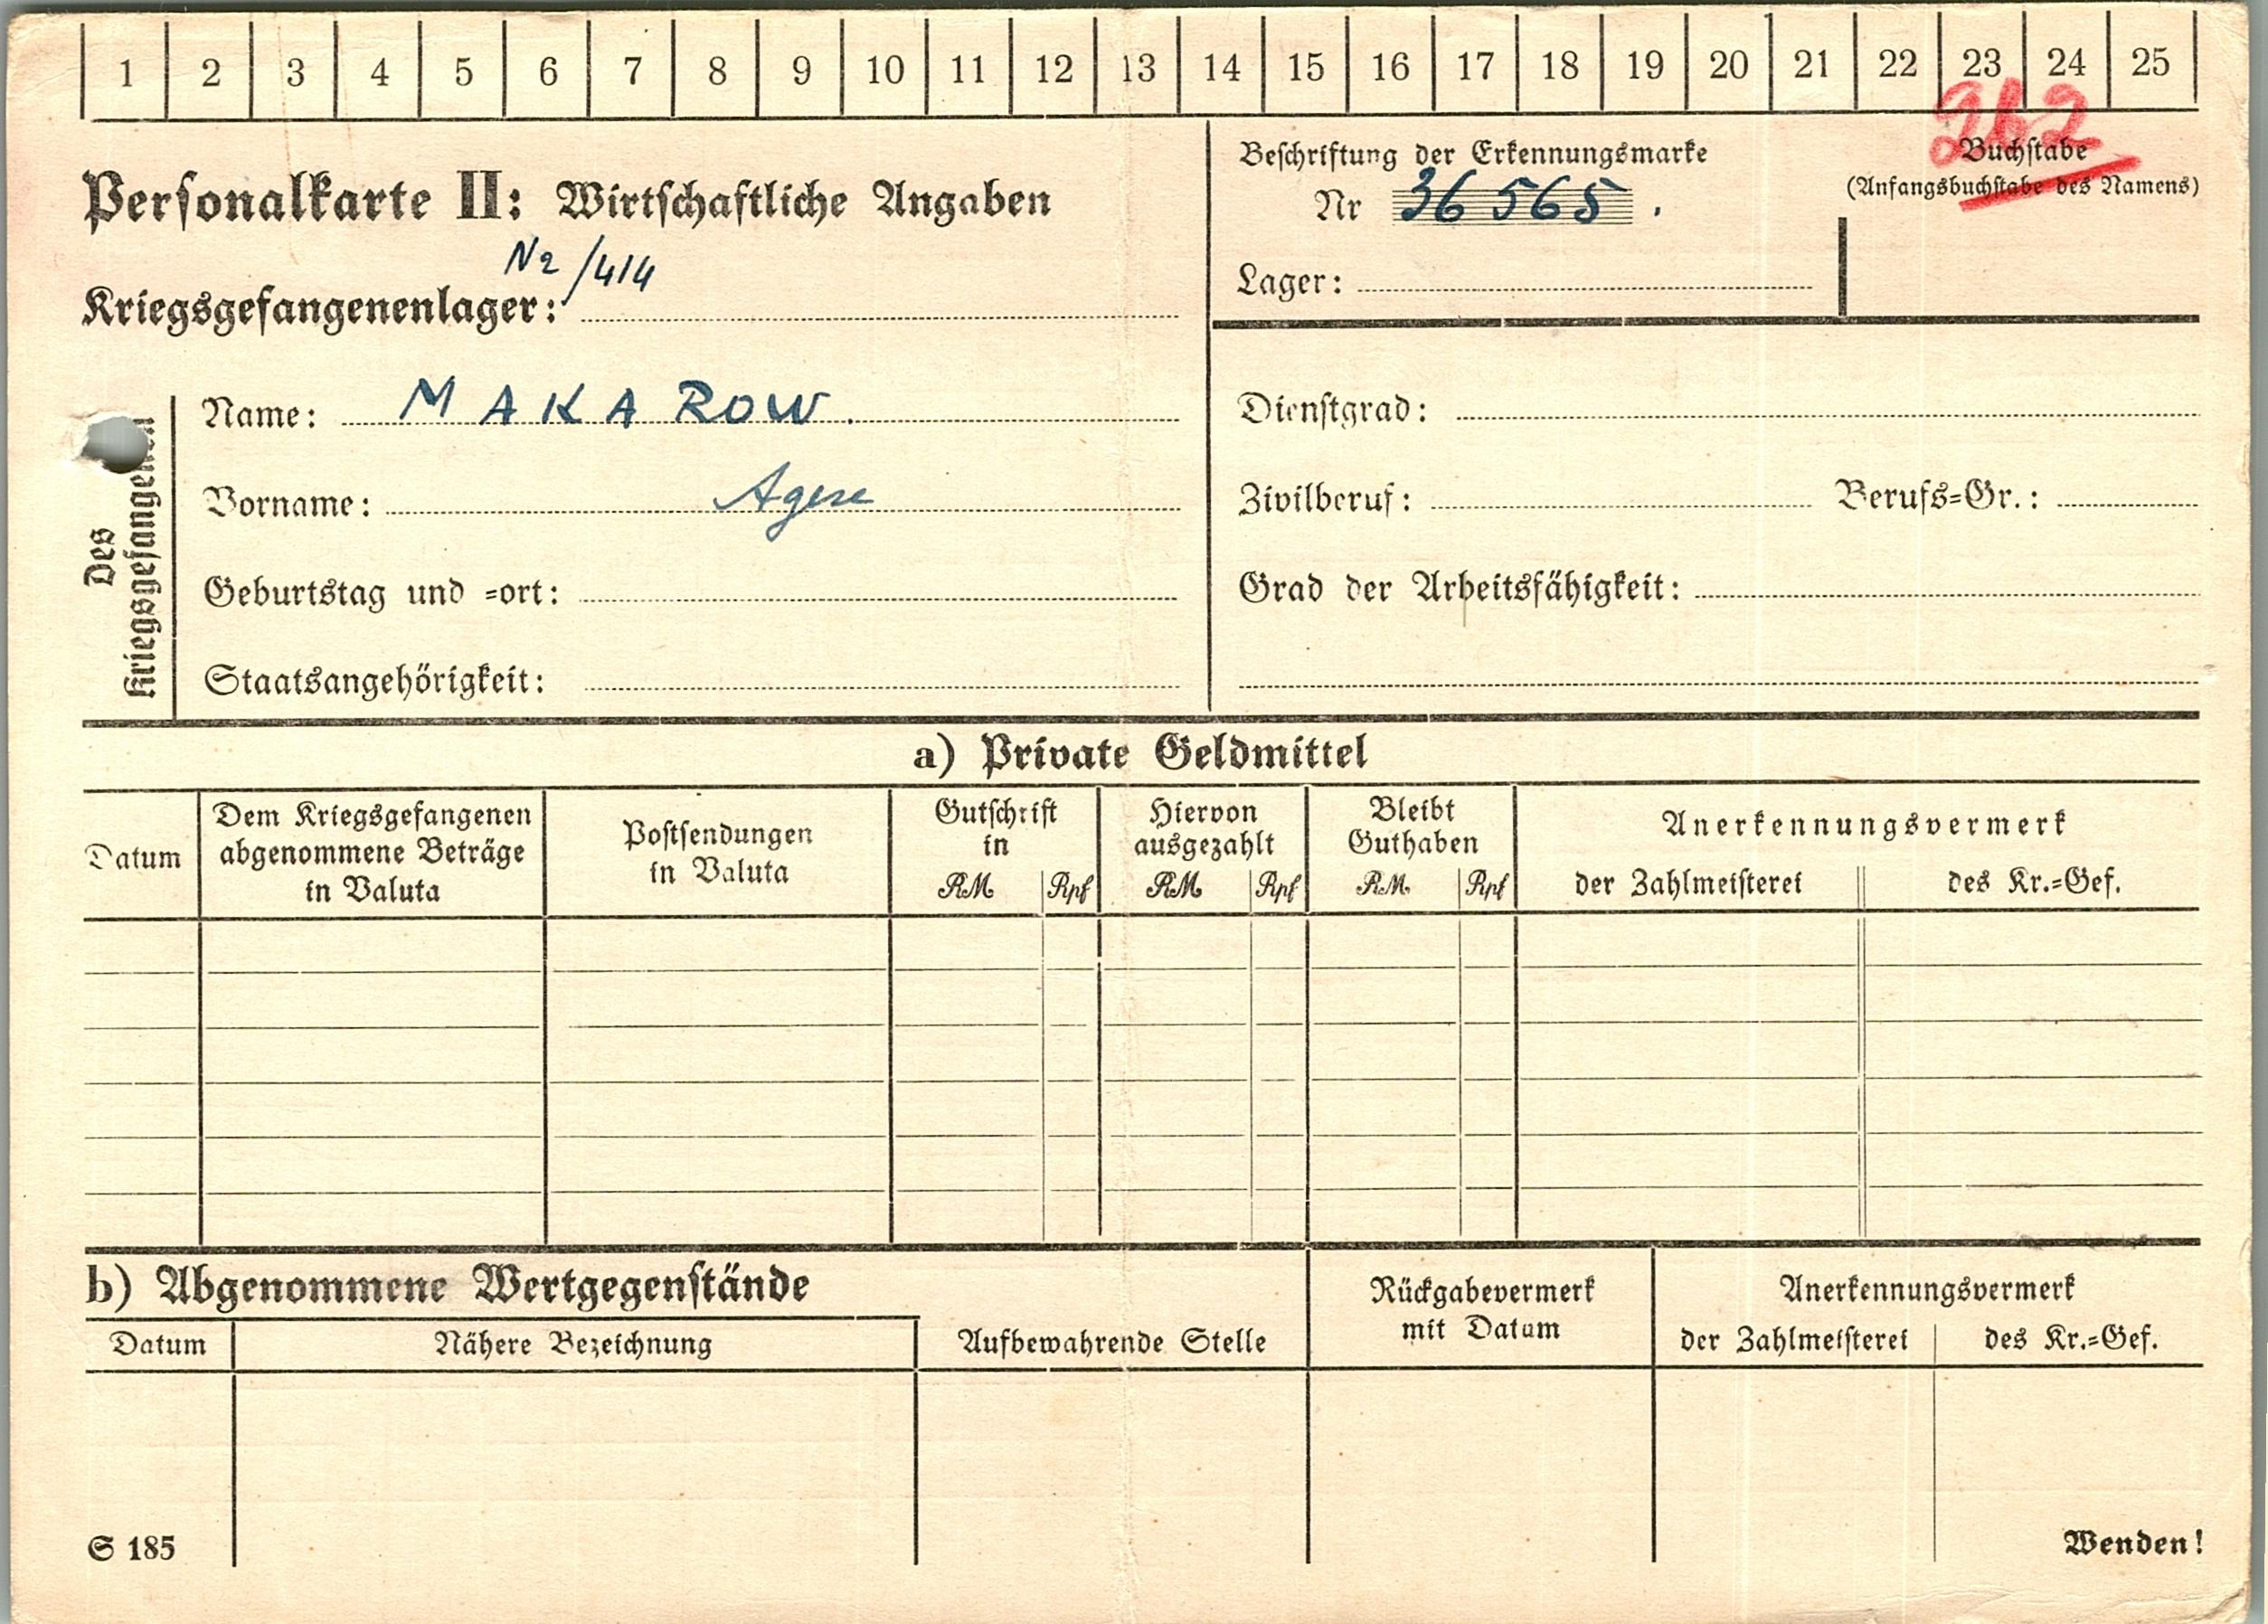 1 2 3 4 5 6 7 8 9 10 11 12 13 14 15 16 17 18 19 20 21 22 23 24 25
262
Personalkarte II: Wirtschaftliche Angaben
N2/414
Kriegsgefangenenlager:
Beschriftung der Erkennungsmarke
Nr 36565.
Lager:
Buchstabe
(Anfangsbuchstabe des Namens)
Des
Kriegsgefangenen
Name: MAKAROW.
Vorname:
Geburtstag und =ort:
Staatsangehörigkeit:
Dienstgrad:
Zivilberuf: Berufs=Gr.:
Grad der Arbeitsfähigkeit:
a) Private Geldmittel
Datum
Dem Kriegsgefangenen
abgenommene Beträge
in Valuta
Postsendungen
in Valuta
Gutschrift
in
RM Rpf
Hiervon
ausgezahlt
RM Rpf
Bleibt
Guthaben
RM Rpf
Anerkennungsvermerk
der Zahlmeisterei des Kr.=Gef.
b) Abgenommene Wertgegenstände
Datum Nähere Bezeichnung Aufbewahrende Stelle
Rückgabevermerk
mit Datum
Anerkennungsvermerk
der Zahlmeisterei des Kr.=Gef.
S 185
Wenden!